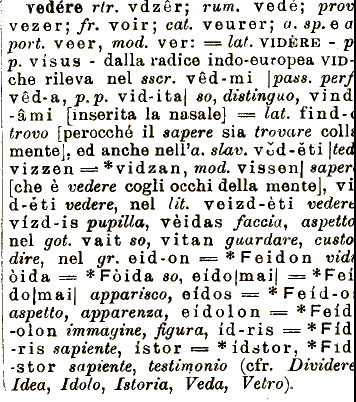 vedére rtr. vdzêr; rum. vedé; prov
vezer; fr. voir; cat. veurer; a. sp. e a
port. veer, mod. ver: = lat. VIDÈRE - p
p. visus - dalla radice indo-europea VID-
che rileva nel sscr. vêd-mi |pass. perf
vêd-a, p. p. vid-ita| so, distinguo, vind
-âmi [inserita la nasale] = lat. find-o
trovo [perocché il sapere sia trovare colla
mente], ed anche nell'a. slav. vĕd-ĕti |ted
vizzen = *vidzan, mod. vissen| saper
[che è vedere cogli occhi della mente], vi
d-éti vedere, nel lit. veizd-èti vedere
vízd-is pupilla, vèidas faccia, aspetto
nel got. vait so, vitan guardare, custo
dire, nel gr. eid-on = *Feidon vidi
òida = *Fòida so, eído|mai| = *Feí
do|mai| apparisco, eídos = *Feíd-o
aspetto, apparenza, eídolon = *Feíd
-olon immagine, figura, íd-ris = *Fíd
-ris sapiente, ístor = *ídstor, *Fid
-stor sapiente, testimonio (cfr. Dividere
Idea, Idolo, Istoria, Veda, Vetro).